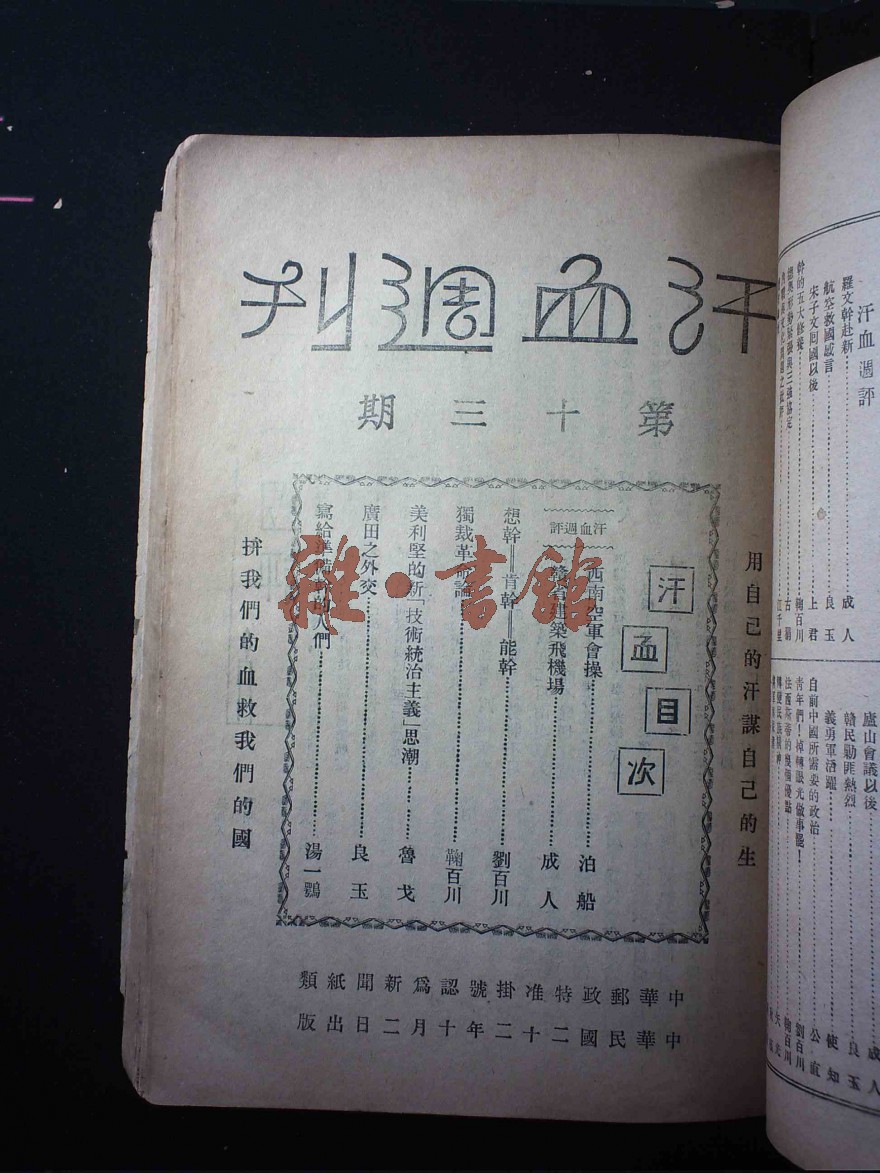 汗血週刊
第十三期
用自己的汗謀自己的生
汗血目次
汗血週評
西南空軍會操……泊船
贛省建築飛機場……成人
想幹——肯幹——能幹……劉百川
獨裁革命論……鞠百川
美利堅的新「技術統治主義」思潮……魯戈
廣田之外交……良玉
寫給準備的人們……湯一鶚
拚我們的血救我們的國
中華郵政特准掛號認爲新聞紙類
中華民國二十二年十月二日出版
雜·書館
汗血週評
羅文幹赴新……成人
航空救國感言……良玉
宋子文囘國以後……上君
幹的五大修養……鞠百川
廬山會議以後……成人
贛民勦匪熱烈……良玉
義勇軍活躍……使知
目前中國所需要的政治……公直
青年們!掉轉眼光做事罷!……劉百川